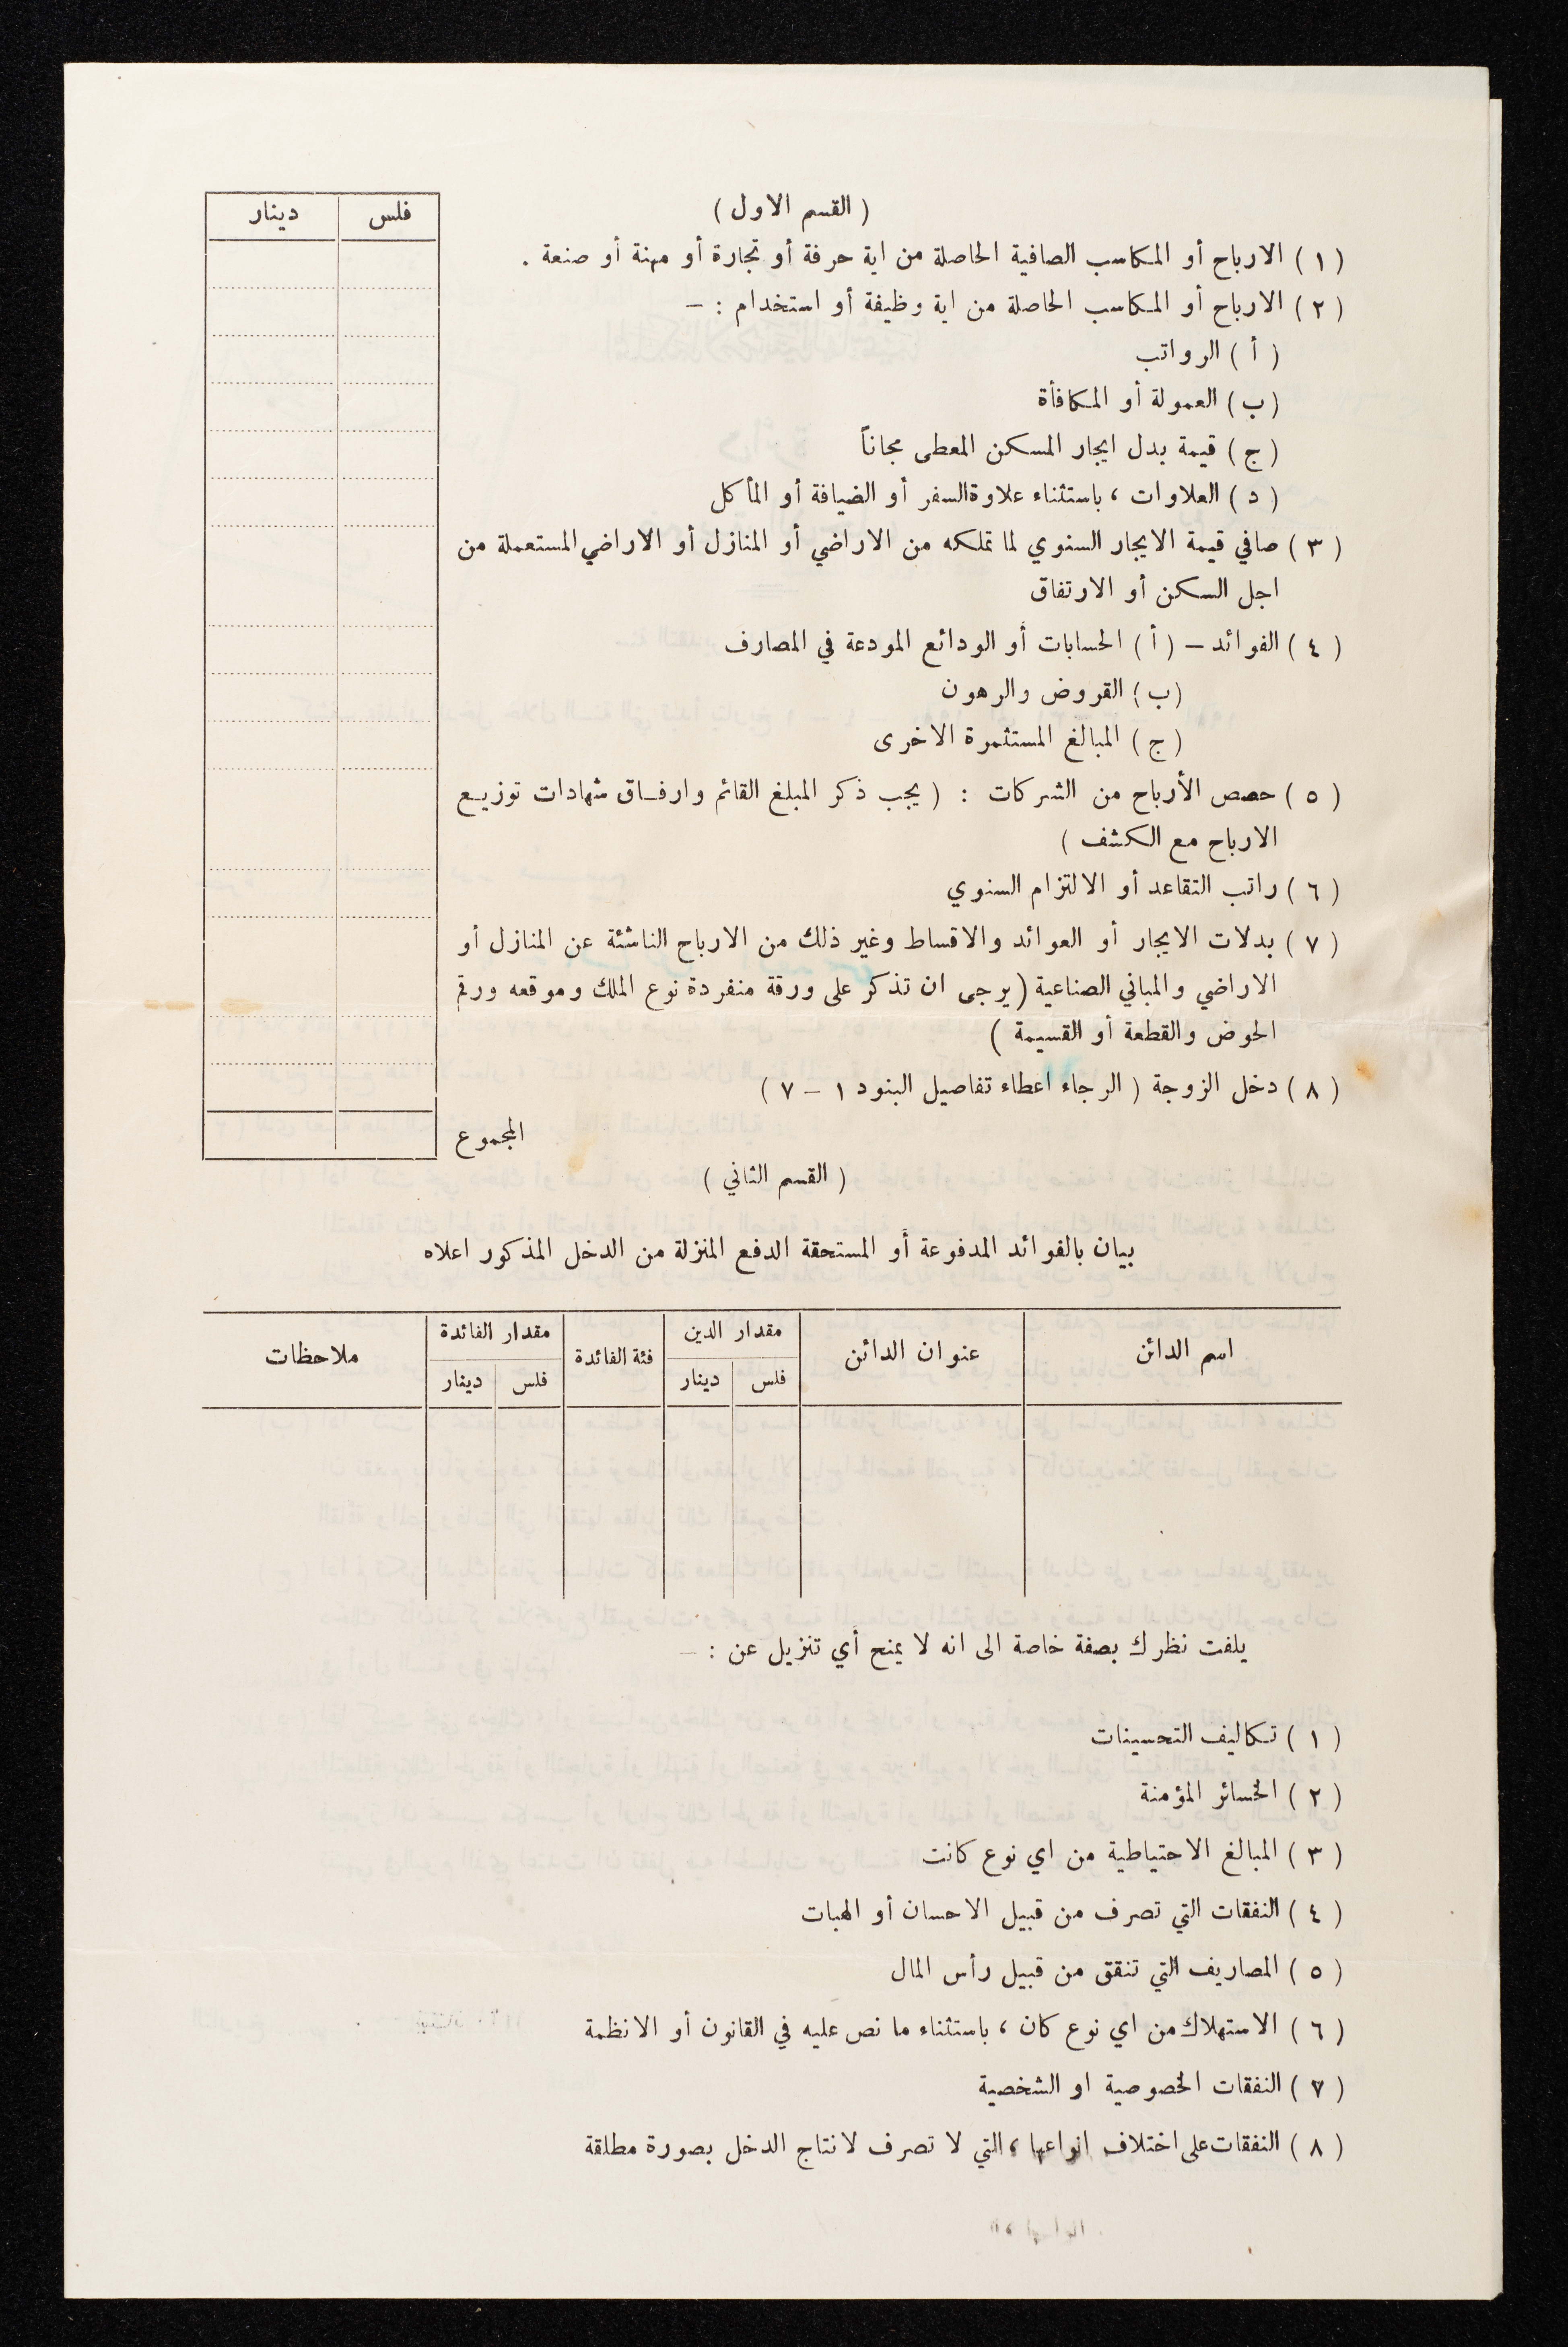 ( القسم الاول )
فلس دينار
( ١ ) الارباح أو المكاسب الصافية الحاصلة من اية حرفة أو تجارة أو مهنة أو صنعة .
( ٢ ) الارباح أو المكاسب الحاصلة من اية وظيفة أو استخدام : –
( أ ) الرواتب
( ب ) العمولة أو المكافأة
( ج ) قيمة بدل ايجار المسكن المعطى مجاناً
( د ) العلاوات ، باستثناء علاوة السفر أو الضيافة أو المأكل
( ٣ ) صافي قيمة الايجار السنوي لما تملكه من الاراضي أو المنازل أو الاراضي المستعملة من
اجل السكن أو الارتفاق
( ٤ ) الفوائد – ( أ ) الحسابات أو الودائع المودعة في المصارف
( ب ) القروض والرهون
( ج ) المبالغ المستثمرة الاخرى
( ٥ ) حصص الأرباح من الشركات : ( يجب ذكر المبلغ القائم وارفاق شهادات توزيع
الارباح مع الكشف )
( ٦ ) راتب التقاعد أو الالتزام السنوي
( ٧ ) بدلات الايجار أو العوائد والاقساط وغير ذلك من الارباح الناشئة عن المنازل أو
الاراضي والمباني الصناعية ( يرجى ان تذكر على ورقة منفردة نوع الملك وموقعه ورقم
الحوض والقطعة أو القسيمة )
( ٨ ) دخل الزوجة ( الرجاء اعطاء تفاصيل البنود ١ – ٧ )
المجموع
( القسم الثاني )
بيان بالفوائد المدفوعة أو المستحقة الدفع المنزلة من الدخل المذكور اعلاه
اسم الدائن عنوان الدائن مقدار الدين فئة الفائدة مقدار الفائدة ملاحظات
فلس دينار فلس دينار
يلفت نظرك بصفة خاصة الى انه لا يمنح أي تنزيل عن : –
( ١ ) تكاليف التحسينات
( ٢ ) الخسائر المؤمنة
( ٣ ) المبالغ الاحتياطية من اي نوع كانت
( ٤ ) النفقات التي تصرف من قبيل الاحسان أو الهبات
( ٥ ) المصاريف التي تنفق من قبيل رأس المال
( ٦ ) الاستهلاك من اي نوع كان ، باستثناء ما نص عليه في القانون أو الانظمة
( ٧ ) النفقات الخصوصية او الشخصية
( ٨ ) النفقات على اختلاف انواعها ، التي لا تصرف لانتاج الدخل بصورة مطلقة